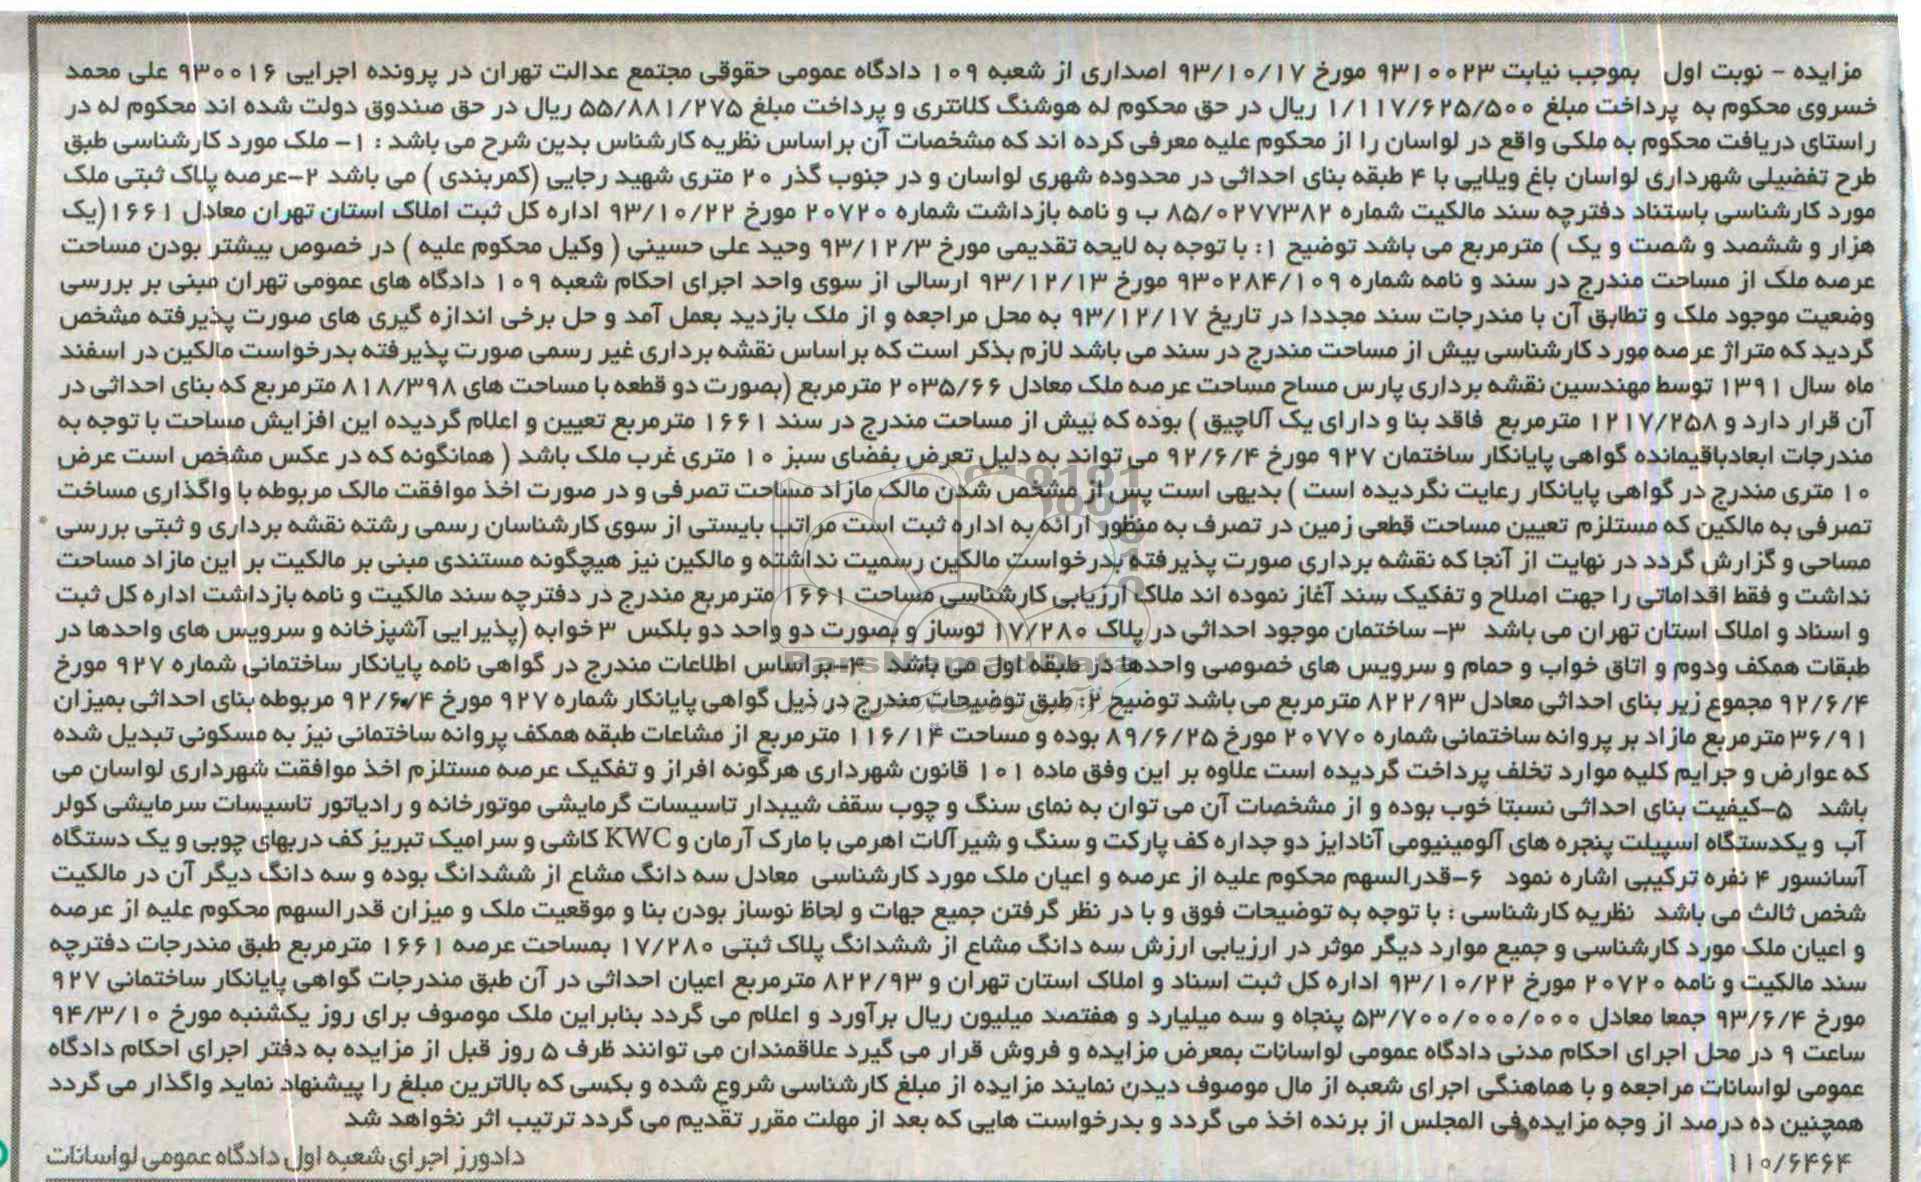 مزایده - نوبت اول بموجب نیابت ۹۳۱۰۰۲۳ مورخ ۹۳/۱۰/۱۷ اصداری از شعبه ۱۰۹ دادگاه عمومی حقوقی مجتمع عدالت تهران در پرونده اجرایی ۹۳۰۰۱۶ علی محمد
خسروی محکوم به پرداخت مبلغ ۱/۱۱۷/۶۲۵/۵۰۰ ریال در حق محکوم له هوشنگ کلانتری و پرداخت مبلغ ۵۵/۸۸۱/۲۷۵ ریال در حق صندوق دولت شده اند محکوم له در
راستای دریافت محکوم به ملکی واقع در لواسان را از محکوم علیه معرفی کرده اند که مشخصات آن براساس نظریه کارشناس بدین شرح می باشد : ۱- ملک مورد کارشناسی طبق
طرح تفضیلی شهرداری لواسان باغ ویلایی با ۴ طبقه بنای احداثی در محدوده شهری لواسان و در جنوب گذر ۲۰ متری شهید رجایی (کمربندی ) می باشد ۲-عرصه پلاک ثبتی ملک
مورد کارشناسی باستناد دفترچه سند مالکیت شماره ۸۵/۰۲۷۷۳۸۲ ب و نامه بازداشت شماره ۲۰۷۲۰ مورخ ۹۳/۱۰/۲۲ اداره کل ثبت املاک استان تهران معادل ۱۶۶۱(یک
هزار و ششصد و شصت و یک ) مترمربع می باشد توضیح ۱: با توجه به لایحه تقدیمی مورخ ۹۳/۱۲/۳ وحید علی حسینی ( وکیل محکوم علیه ) در خصوص بیشتر بودن مساحت
عرصه ملک از مساحت مندرج در سند و نامه شماره ۹۳۰۲۸۴/۱۰۹ مورخ ۹۳/۱۲/۱۳ ارسالی از سوی واحد اجرای احکام شعبه ۱۰۹ دادگاه های عمومی تهران مبنی بر بررسی
وضعیت موجود ملک و تطابق آن با مندرجات سند مجددا در تاریخ ۹۳/۱۲/۱۷ به محل مراجعه و از ملک بازدید بعمل آمد و حل برخی اندازه گیری های صورت پذیرفته مشخص
گردید که متراژ عرصه مورد کارشناسی بیش از مساحت مندرج در سند می باشد لازم بذکر است که براساس نقشه برداری غیر رسمی صورت پذیرفته بدرخواست مالکین در اسفند
ماه سال ۱۳۹۱ توسط مهندسین نقشه برداری پارس مساح مساحت عرصه ملک معادل ۲۰۳۵/۶۶ مترمربع (بصورت دو قطعه با مساحت های ۸۱۸/۳۹۸ مترمربع که بنای احداثی در
آن قرار دارد و ۱۲۱۷/۲۵۸ مترمربع فاقد بنا و دارای یک آلاچیق ) بوده که بیش از مساحت مندرج در سند ۱۶۶۱ مترمربع تعیین و اعلام گردیده این افزایش مساحت با توجه به
مندرجات ابعادباقیمانده گواهی پایانکار ساختمان ۹۲۷ مورخ ۹۲/۶/۴ می تواند به دلیل تعرض بفضای سبز ۱۰ متری غرب ملک باشد ( همانگونه که در عکس مشخص است عرض
۱۰ متری مندرج در گواهی پایانکار رعایت نگردیده است ) بدیهی است پس از مشخص شدن مالک مازاد مساحت تصرفی و در صورت اخذ موافقت مالک مربوطه با واگذاری مساحت
تصرفی به مالکین که مستلزم تعیین مساحت قطعی زمین در تصرف به منظور ارائه به اداره ثبت است مراتب بایستی از سوی کارشناسان رسمی رشته نقشه برداری و ثبتی بررسی
مساحی و گزارش گردد در نهایت از آنجا که نقشه برداری صورت پذیرفته بدرخواست مالکین رسمیت نداشته و مالکین نیز هیچگونه مستندی مبنی بر مالکیت بر این مازاد مساحت
نداشت و فقط اقداماتی را جهت اصلاح و تفکیک سند آغاز نموده اند ملاک ارزیابی کارشناسی مساحت ۱۶۶۱ مترمربع مندرج در دفترچه سند مالکیت و نامه بازداشت اداره کل ثبت
و اسناد و املاک استان تهران می باشد ۳- ساختمان موجود احداثی در پلاک ۱۷/۲۸۰ نوساز و بصورت دو واحد دو بلکس ۳ خوابه (پذیرایی آشپزخانه و سرویس های واحدها در
طبقات همکف ودوم و اتاق خواب و حمام و سرویس های خصوصی واحدها در طبقه اول می باشد ۴-براساس اطلاعات مندرج در گواهی نامه پایانکار ساختمانی شماره ۹۲۷ مورخ
۹۲/۶/۴ مجموع زیر بنای احداثی معادل ۸۲۲/۹۳ مترمربع می باشد توضیح ۲: طبق توضیحات مندرج در ذیل گواهی پایانکار شماره ۹۲۷ مورخ ۹۲/۶/۴ مربوطه بنای احداثی بمیزان
۳۶/۹۱ مترمربع مازاد بر پروانه ساختمانی شماره ۲۰۷۷۰ مورخ ۸۹/۶/۲۵ بوده و مساحت ۱۱۶/۱۴ مترمربع از مشاعات طبقه همکف پروانه ساختمانی نیز به مسکونی تبدیل شده
که عوارض و جرایم کلیه موارد تخلف پرداخت گردیده است علاوه بر این وفق ماده ۱۰۱ قانون شهرداری هرگونه افراز و تفکیک عرصه مستلزم اخذ موافقت شهرداری لواسان می
باشد ۵-کیفیت بنای احداثی نسبتا خوب بوده و از مشخصات آن می توان به نمای سنگ و چوب سقف شیبدار تاسیسات گرمایشی موتورخانه و رادیاتور تاسیسات سرمایشی کولر
آب و یکدستگاه اسپیلت پنجره های آلومینیومی آنادایز دو جداره کف پارکت و سنگ و شیرآلات اهرمی با مارک آرمان و KWC کاشی و سرامیک تبریز کف دربهای چوبی و یک دستگاه
آسانسور ۴ نفره ترکیبی اشاره نمود ۶-قدرالسهم محکوم علیه از عرصه و اعیان ملک مورد کارشناسی معادل سه دانگ مشاع از ششدانگ بوده و سه دانگ دیگر آن در مالکیت
شخص ثالث می باشد نظریه کارشناسی : با توجه به توضیحات فوق و با در نظر گرفتن جمیع جهات و لحاظ نوساز بودن بنا و موقعیت ملک و میزان قدرالسهم محکوم علیه از عرصه
و اعیان ملک مورد کارشناسی و جمیع موارد دیگر موثر در ارزیابی ارزش سه دانگ مشاع از ششدانگ پلاک ثبتی ۱۷/۲۸۰ بمساحت عرصه ۱۶۶۱ مترمربع طبق مندرجات دفترچه
سند مالکیت و نامه ۲۰۷۲۰ مورخ ۹۳/۱۰/۲۲ اداره کل ثبت اسناد و املاک استان تهران و ۸۲۲/۹۳ مترمربع اعیان احداثی در آن طبق مندرجات گواهی پایانکار ساختمانی ۹۲۷
مورخ ۹۳/۶/۴ جمعا معادل ۵۳/۷۰۰/۰۰۰/۰۰۰ پنجاه و سه میلیارد و هفتصد میلیون ریال برآورد و اعلام می گردد بنابراین ملک موصوف برای روز یکشنبه مورخ ۹۴/۳/۱۰
ساعت ۹ در محل اجرای احکام مدنی دادگاه عمومی لواسانات بمعرض مزایده و فروش قرار می گیرد علاقمندان می توانند ظرف ۵ روز قبل از مزایده به دفتر اجرای احکام دادگاه
عمومی لواسانات مراجعه و با هماهنگی اجرای شعبه از مال موصوف دیدن نمایند مزایده از مبلغ کارشناسی شروع شده و بکسی که بالاترین مبلغ را پیشنهاد نماید واگذار می گردد
همچنین ده درصد از وجه مزایده فی المجلس از برنده اخذ می گردد و بدرخواست هایی که بعد از مهلت مقرر تقدیم می گردد ترتیب اثر نخواهد شد
۱۱۰/۶۴۶۴ دادورز اجرای شعبه اول دادگاه عمومی لواسانات
ParsNamadData